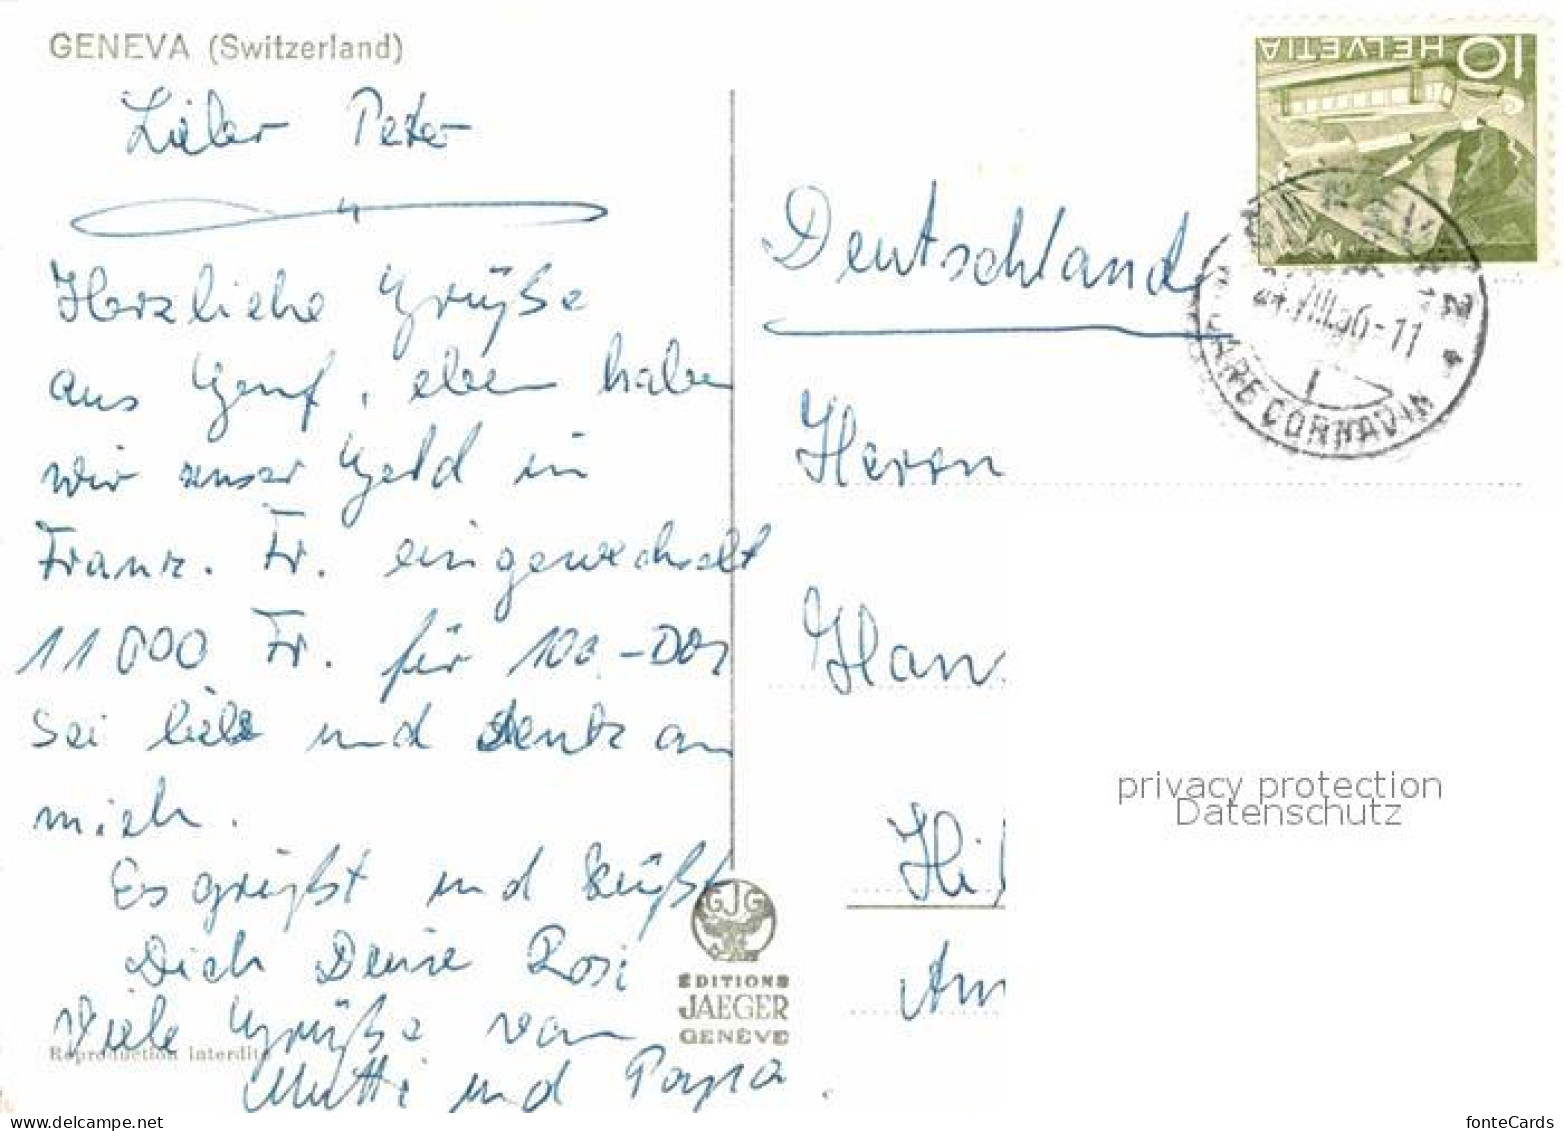 GENEVA (Switzerland)
Lieber Peter
Herzliche Grüße
aus Genf, eben haben
wir unser Geld in
Franz. Fr. eingewechselt
11 000 Fr. für 100,-
Sei lieb und denke an
mich.
Es grüßt und küßt
Dich Deine Rosi
Viele Grüße von
Mutti und Pappa.
Reproduction interdite
GJG
ÉDITIONS
JAEGER
GENÈVE
10 HELVETIA
2
24.VIII.56-11
GARE CORNAVIN
Deutschland
Herrn
Han
Hil
Am
privacy protection
Datenschutz
www.oldthing.de
fonteCards